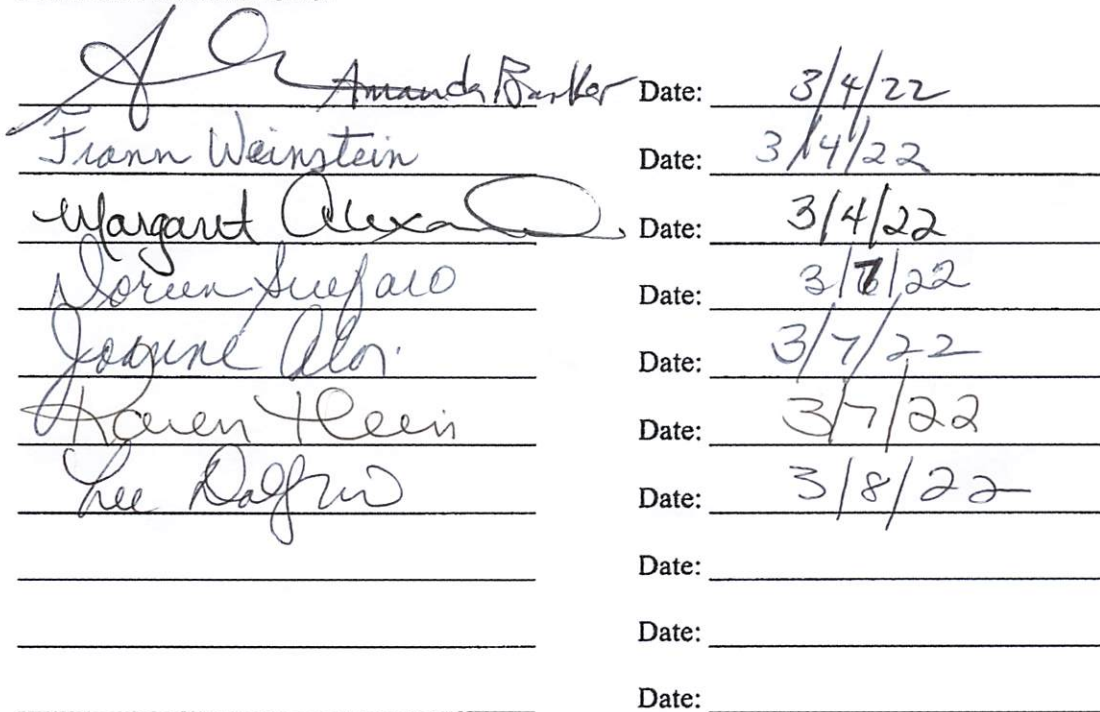 Amanda Barker Date: 3/4/22
Frann Weinstein Date: 3/4/22
Margaret Date: 3/4/22
Doreen Date: 3/7/22
Joanne Aloi Date: 3/7/22
Karen Date: 3/7/22
Lee Date: 3/8/22
Date:
Date:
Date: